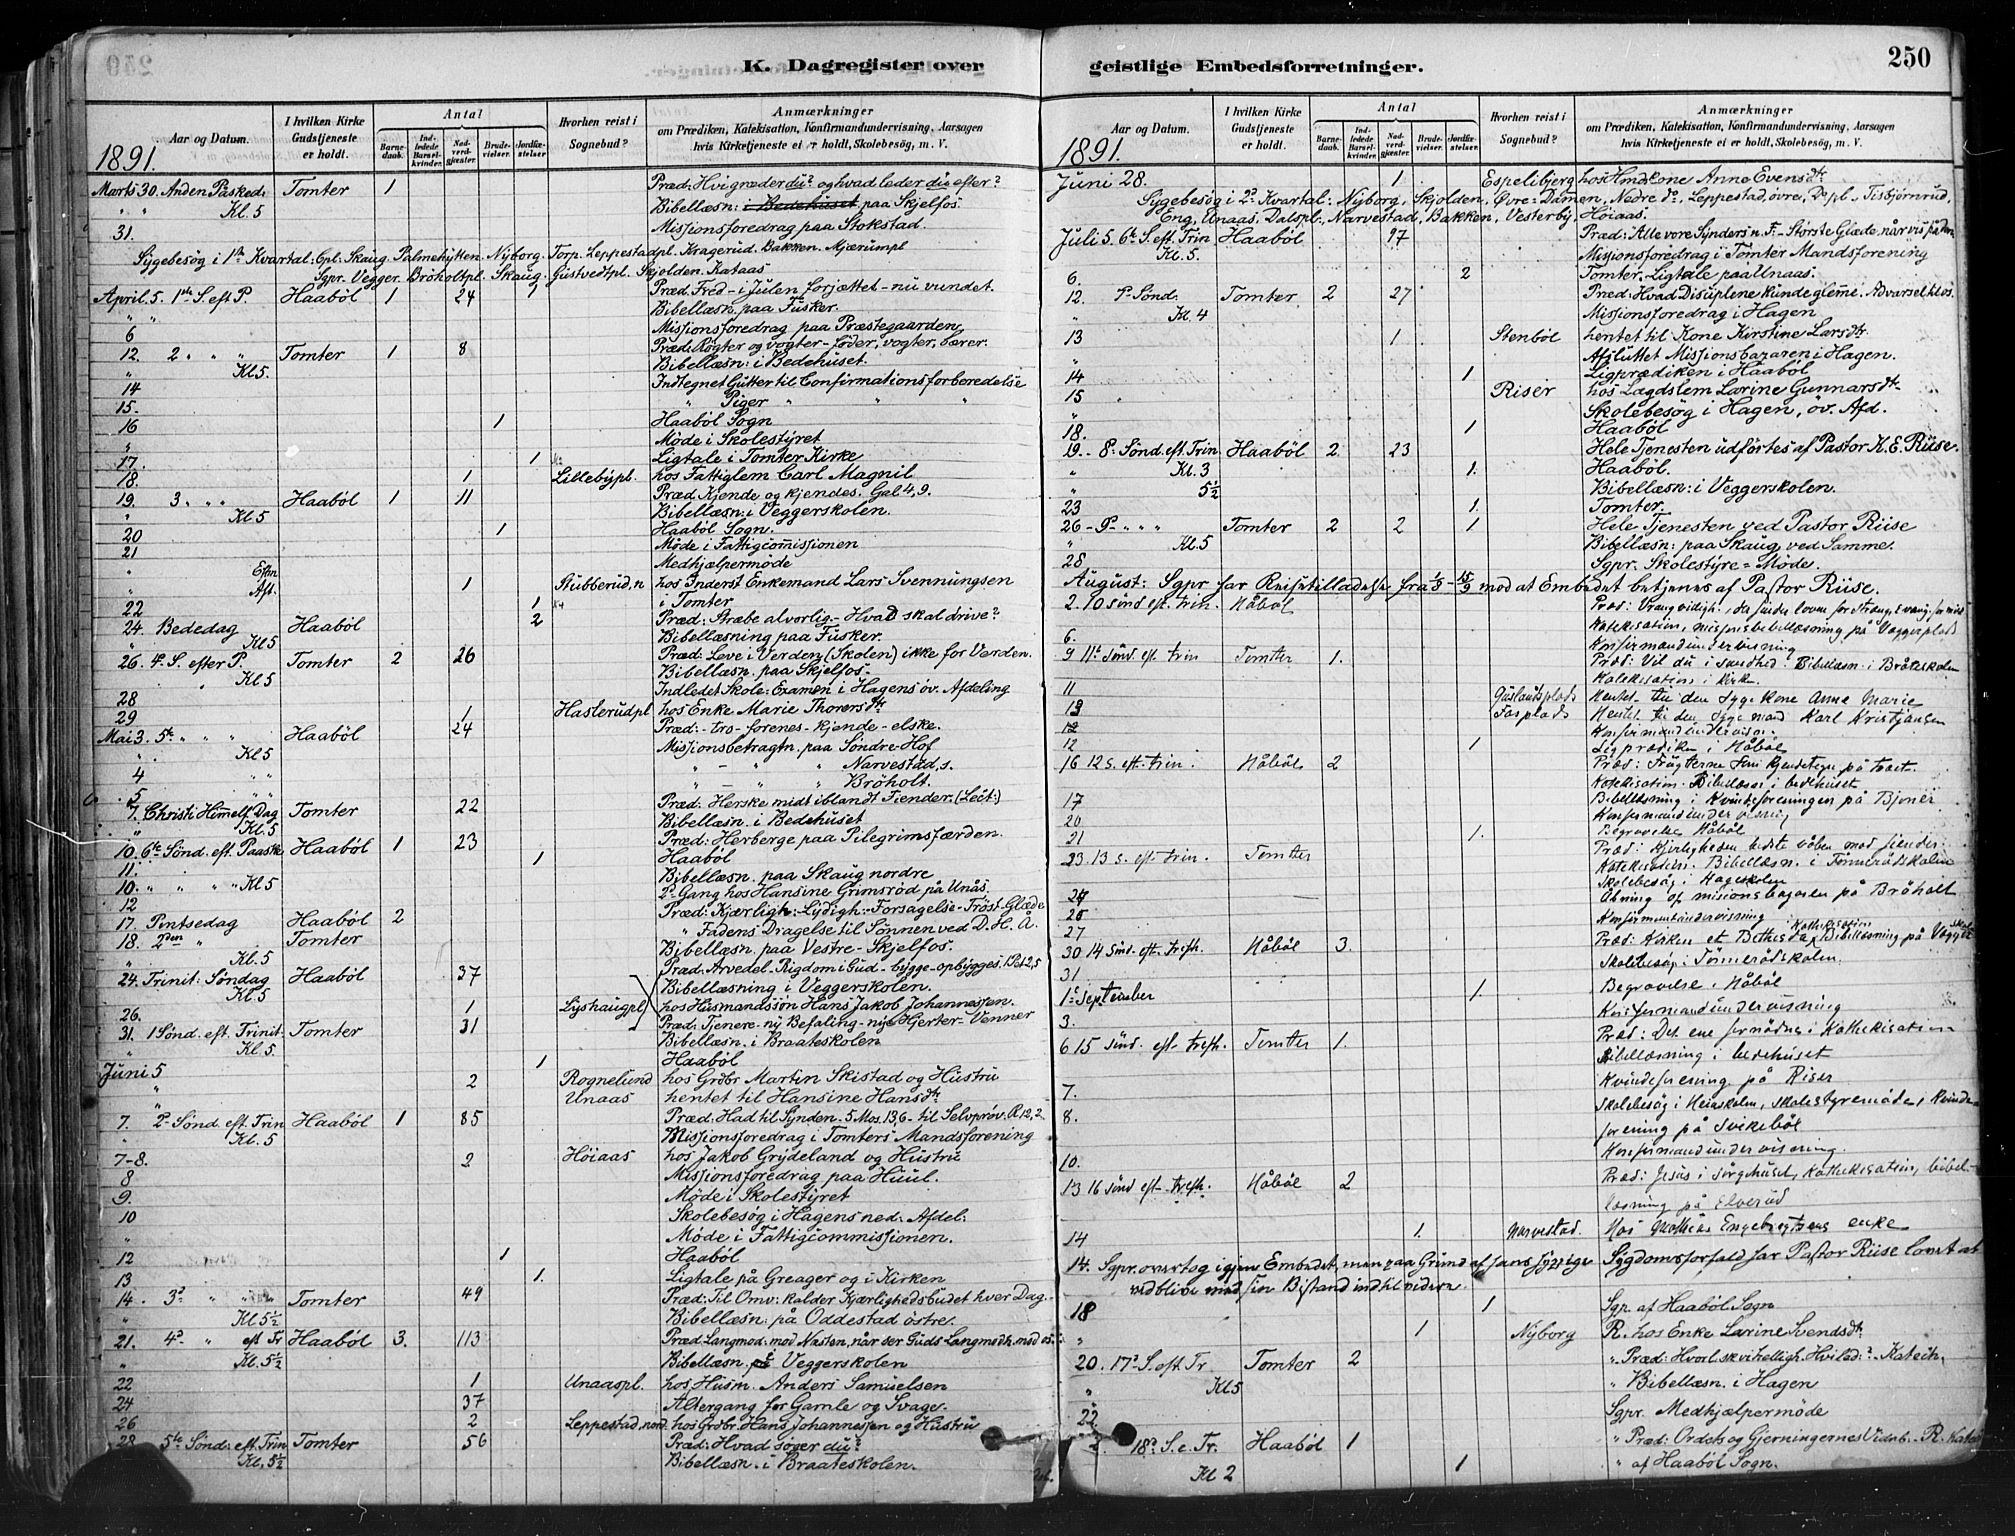 K. Dagregister over
Aar og Datum.
I hvilken Kirke Gudstjeneste er holdt.
Antal
Barnedaab.
Indledede Barselkvinder.
Nadverdgjæster
Brudevielser.
Jordfæstelser
Hvorhen reist i Sognebud?
Anmærkninger
om Prædiken, Katekisation, Konfirmandundervisning, Aarsagen hvis Kirketjeneste ei er holdt, Skolebesøg, m. V.
1891.
Marts 30. Anden Påsked: Tomter 1 Præd: Hvi græder du? og hvad leder du efter?
" " Kl. 5 Bibellæsn: i Bedehuset paa Skjelfos.
31. Missionsforedrag paa Stokstad.
Sygebesøg i 1ste Kvartal: Spl. Skaug. Palmehytten. Nyborg. Torp. Leppestadpl. Kragerud. Bakken. Mjærumpl
Sgpr. Vegger. Bröholtpl. Skaug. Gustvedtpl. Skjolden. Kataas
April 5. 1ste S. eft P. Haaböl 1 24 1 Præd. Fred - i Julen forjættet - nu vundet.
" " Bibellæsn. paa Fusker.
6 Missionsforedrag paa Præstegaarden
12. 2 " " " Tomter 1 8 Præd: Røgter og vogter - föder, vogter, bærer.
" Kl 5. Bibellæsn: i Bedehuset.
14 Indtegnet Gutter til Confirmationsforberedelse
15. " Piger " " "
16 1 Haaböl Sogn
" Møde i Skolestyret
17. 1 Ligtale i Tomter Kirke
18. 1 Lillebypl. hos Fattiglem Carl Magnil
19. 3 " " " Haaböl 1 11 Præd. Kjende og kjendes. Gal. 4, 9.
" Kl 5 Bibellæsn: i Veggerskolen.
20 1 Haaböl Sogn.
21 Møde i Fattigcommissionen
" Eftm Medhjælpermöde
" Aft. 1 Stubberud.n hos Inderst Enkemand Lars Svennungsen
22 1 i Tomter
24. Bededag Haaböl 2 Præd: Stræbe alvorlig - Hvad skal drive?
" Kl 5 Bibellæsning paa Fusker.
26. 4de S. efter P. Tomter 2 26 Præd: Leve i Verden (Skolen) ikke for Verden.
" Kl 5 Bibellæsn. paa Skjelfos.
28 Indledet Skole-Examen i Hagens öv. Afdeling
29 1 Haslerudpl hos Enke Marie Thorersdtr
Mai 3. 5te " " " Haaböl 24 Præd: - tro - forenes - kjende - elske.
" Kl 5 Missionsbetragtn. paa Söndre-Hof
4 " " " - " " Narvestad, s.
5 " " " - " " Bröholt.
7. Christi Himmelf. Dag Tomter 22 Præd: Herske midt iblandt Fiender. (Lect:)
" Kl. 5 Bibellæsn. i Bedehuset
10. 6te Sönd. eft. Paaske Haaböl 1 23 Præd: Herberge paa Pilegrimsfærden.
11. 1 Haaböl
10. " " " " Kl 5 Bibellæsn. paa Skaug nordre
12 2den Gang hos Hansine Grimsröd på Unås.
17. Pintsedag Haaböl 2 Præd: Kjærligh: Lydigh: Forsagelse - Tröst - Glæde
18. 2den " Tomter " Fadens Dragelse til Sönnen ved D. H. Å.
" Kl. 5 Bibellæsn. paa Vestre - Skjelfos.
24. Trinit: Söndag Haaböl 37 Præd: Arvedel. Rigdom i Gud - bygge - opbygges 1 Pet 2, 5
Kl 5 Bibellæsning i Veggerskolen.
26. 1 Lyshaugpl hos Husmandssön Hans Jakob Johannessen.
31. 1 Sönd. eft. Trinit: Tomter 31 Præd: Tjenere - ny Befaling - nye Hjerter - Venner
" Kl. 5. Bibellæsn. i Braateskolen
Juni 5 1 Haaböl
" 2 Rognelund hos Grdbr. Martin Skistad og Hustru
Unaas hentet til Hansine Hansdtr
7. 2den Sönd. eft. Trin Haaböl 1 85 Præd: Had til Synden. 5 Mos. 13, 6 - til Selvpröv. R. 12, 2
" Kl. 5 Missionsforedrag i Tomters Mandsforening
7-8. 2 Höiaas hos Jakob Grydeland og Hustru
8 Missionsforedrag paa Huul.
9. Møde i Skolestyret
10 Skolebesøg i Hagens ned: Afdel:
" Møde i Fattigcommissionen.
12 1 Haaböl
13 1. Ligtale på Greager og i Kirken
14. 3die " " " Tomter 49 Præd: Til Omv: kalder Kjærlighedsbudet hver Dag.
" Kl 5½ Bibellæsn: på Oddestad östre.
21. 4de " eft Tr Haaböl 3. 113 Præd. Langmod. mod Næsten, når ser Guds Langmodh. mod os.
" Kl. 5½ Bibellæsn. på Veggerskolen
22 1 Unaaspl. hos Husm. Anders Samuelsen
24 37 Altergang for Gamle og Svage.
26 2 Leppestad nord. hos Grdbr. Hans Johannessen og Hustru
28 5te Sönd: eft. Trin Tomter 56 Præd: Hvad söger du?
Kl. 5½ Bibellæsn. i Braateskolen.
geistlige Embedsforretninger.
250
Aar og Datum.
I hvilken Kirke Gudstjeneste er holdt.
Antal
Barnedaab.
Indledede Barselkvinder.
Nadverdgjæster
Brudevielser.
Jordfæstelser.
Hvorhen reist i Sognebud?
Anmærkninger
om Prædiken, Katekisation, Konfirmandundervisning, Aarsagen hvis Kirketjeneste ei er holdt, Skolebesøg, m. V.
1891.
Juni 28. 1 Espelibjerg hos Hmdkone Anne Evensdtr.
Sygebesøg i 2det Kvartal: Nyborg, Skjolden, Øvre-Damen, Nedre do, Leppestad, övre, Do pl, Tisbjörnrud,
Eng, Unaas, Dalspl., Narvestad, Bakken, Vesterby, Höiaas.
Juli 5. 6te S. eft. Trin Haaböl 27 Præd: Alle vore Synders n. F. - Störste Glæde, når vis på den
Kl. 5. Missionsforedrag i Tomter Mandsforening
6. 2 Tomter. Ligtale paa Unaas.
12. 7de Sönd. Tomter 2 27 Præd: Hvad Disciplene kunde glemme. Advarsel t. os.
" Kl. 4 Missionsforedrag i Hagen
13 1 Stenböl hentet til Kone Kirstine Larsdtr
" Afsluttet Missionsbazaren i Hagen.
14 1 Ligprædiken i Haaböl
15 Riser hos Lægdslem Larine Gunnarsdtr.
" Skolebesøg i Hagen, öv. Afd.
18. 1 Haaböl
19. - 8de Sönd. eft. Trin Haaböl 2 23 Hele Tjenesten udförtes af Pastor K. E. Riise.
" Kl. 3 1. Haaböl.
" 5½ Bibellæsn: i Veggerskolen.
23 1. Tomter.
26 - 9de " " " Tomter 2 2 1 Hele Tjenesten ved Pastor Riise
" Kl. 5 Bibellæsn: paa Skaug ved Samme.
28 Sgpr. Skolestyre = Møde.
August: Sgpr har Reisetilladelse fra 1/8 - 15/9 mod at Embedet betjenes af Pastor Riise.
2. 10 sönd eft. trin. Håböl
Katekisation, missionsbibellæsning på Veggerplads
6. Konfirmandundervisning
9 11te sönd. eft. trin Tomter 1. Præd: Vil du i sandhed. Bibellæsn: i Bråteskolen
Katekisation i kirk.
11 Hentet til den syge kone Anne Marie
13 Hentet til den syge mand Karl Kristjansen
12 Konfirmandundervisn:
12 1 Ligprædiken i Håböl
16 12 s. eft. trin. Håböl 2 Præd: Frugterne som kjendetegn på træet.
Katekisation. Bibellæsn: i bedehuset
17 Bibellæsning i Kvindeforeningen på Bjoner
20 Konfirmandundervisning
21 1. Begravelse Håböl
23. 13 s. eft. trin. Tomter Præd: Kjerligheden bedste våben mod fiender:
Katekisation. Bibellæsn: i Tömmeråsskolen
Skolebesøg i Hageskolen
26 Åbning af missionsbazaren på Bröholt
27 Konfirmandundervisning
30 14 Sönd. eft. trefh. Håböl 3. Præd: Kirken et Bethesda, Kathekisation Bibellæsning på Veggerskol.
31 Skolebesøg i Tömmeråsskolen.
1ste September 1. Begravelse i Håböl
3. Konfirmandundervisning
6 15 sönd. eft. trefh. Tomter 1. Præd: Det ene fornödne: Kathekisation
Bibellæsning i bedehuset
7. Kvindeforening på Riser
8. Skolebesøg i Heiaskolen, skolestyremöde, Kvindeforening på Svikeböl
10. Konfirmandundervisning.
13 16 sönd eft. trefh. Håböl 2 Præd: Jesus i sörgehuset, Kathekisation, bibellæsning på Elverud
14 1. Narvestad. Hos Mathias Engebrigtsens enke
14. Sgpr. overtog igjen Embedet, men paa Grund af hans hyppige Sygdomsforfald har Pastor Riise lovet at
vedblive med sin Bistand indtil videre.
18 1 Sgp. af Haaböl Sogn
" 1 Nyborg R. hos Enke Larine Svendsdtr
20. 17de S. eft. Tr Tomter 2 " Præd: Hvorl. skr. helligh. Hviled:? - Katech.
" Kl 5 " Bibellæsn. i Hagen
22 Sgpr. Medhjælpermöde
18de S. e. Tr. Haaböl 1 " Præd: Ordets og Gjerningernes Vidnb. - R. Katek
Kl 2 1 " af Haaböl Sogn.